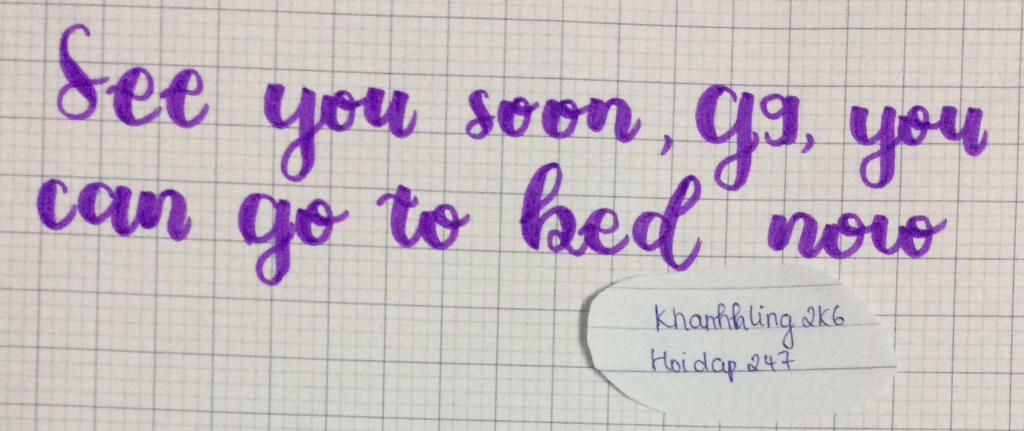 See you soon, G9, you
can go to bed now
Khanhhling 2K6
Hoidap 247